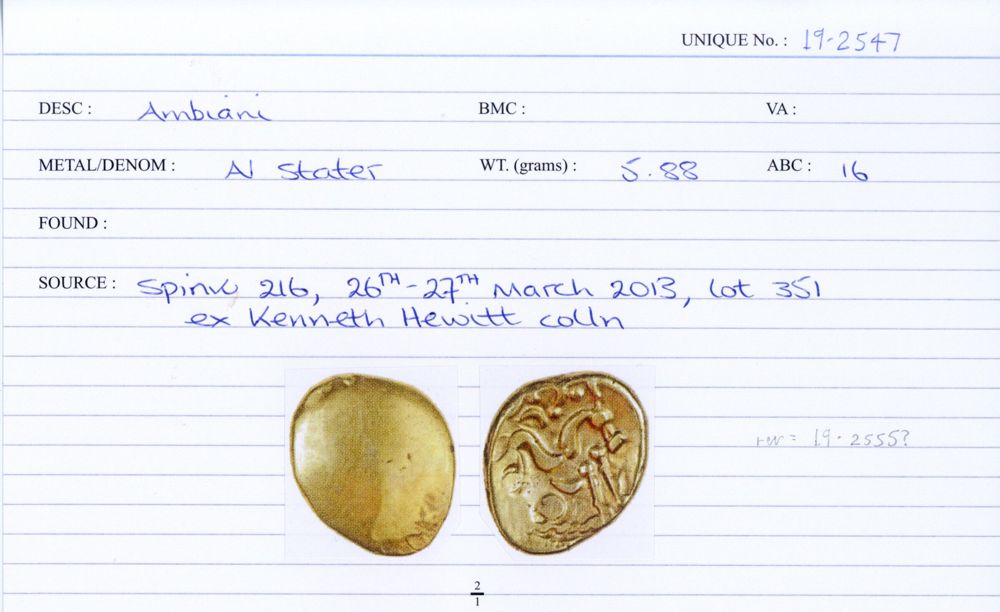 UNIQUE No. : 19-2547
DESC : Ambiani BMC : VA :
METAL/DENOM : AV Stater WT. (grams) : 5.88 ABC : 16
FOUND :
SOURCE : Spink 216, 26TH-27TH March 2013, lot 351
ex Kenneth Hewitt colln
= 19-2555?
2
1